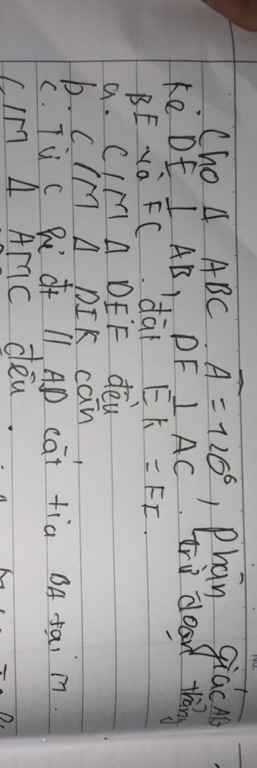 Cho Δ ABC. A = 120°, phân giác AD
Kẻ DE ⊥ AB, DF ⊥ AC. Trừ đoạn thẳng
BE và FC. đặt EK = FI.
a. C/M Δ DEF đều
b. C/M Δ DIK cân
c. Từ C kẻ đt // AD cắt tia BA tại M.
C/M Δ AMC đều.